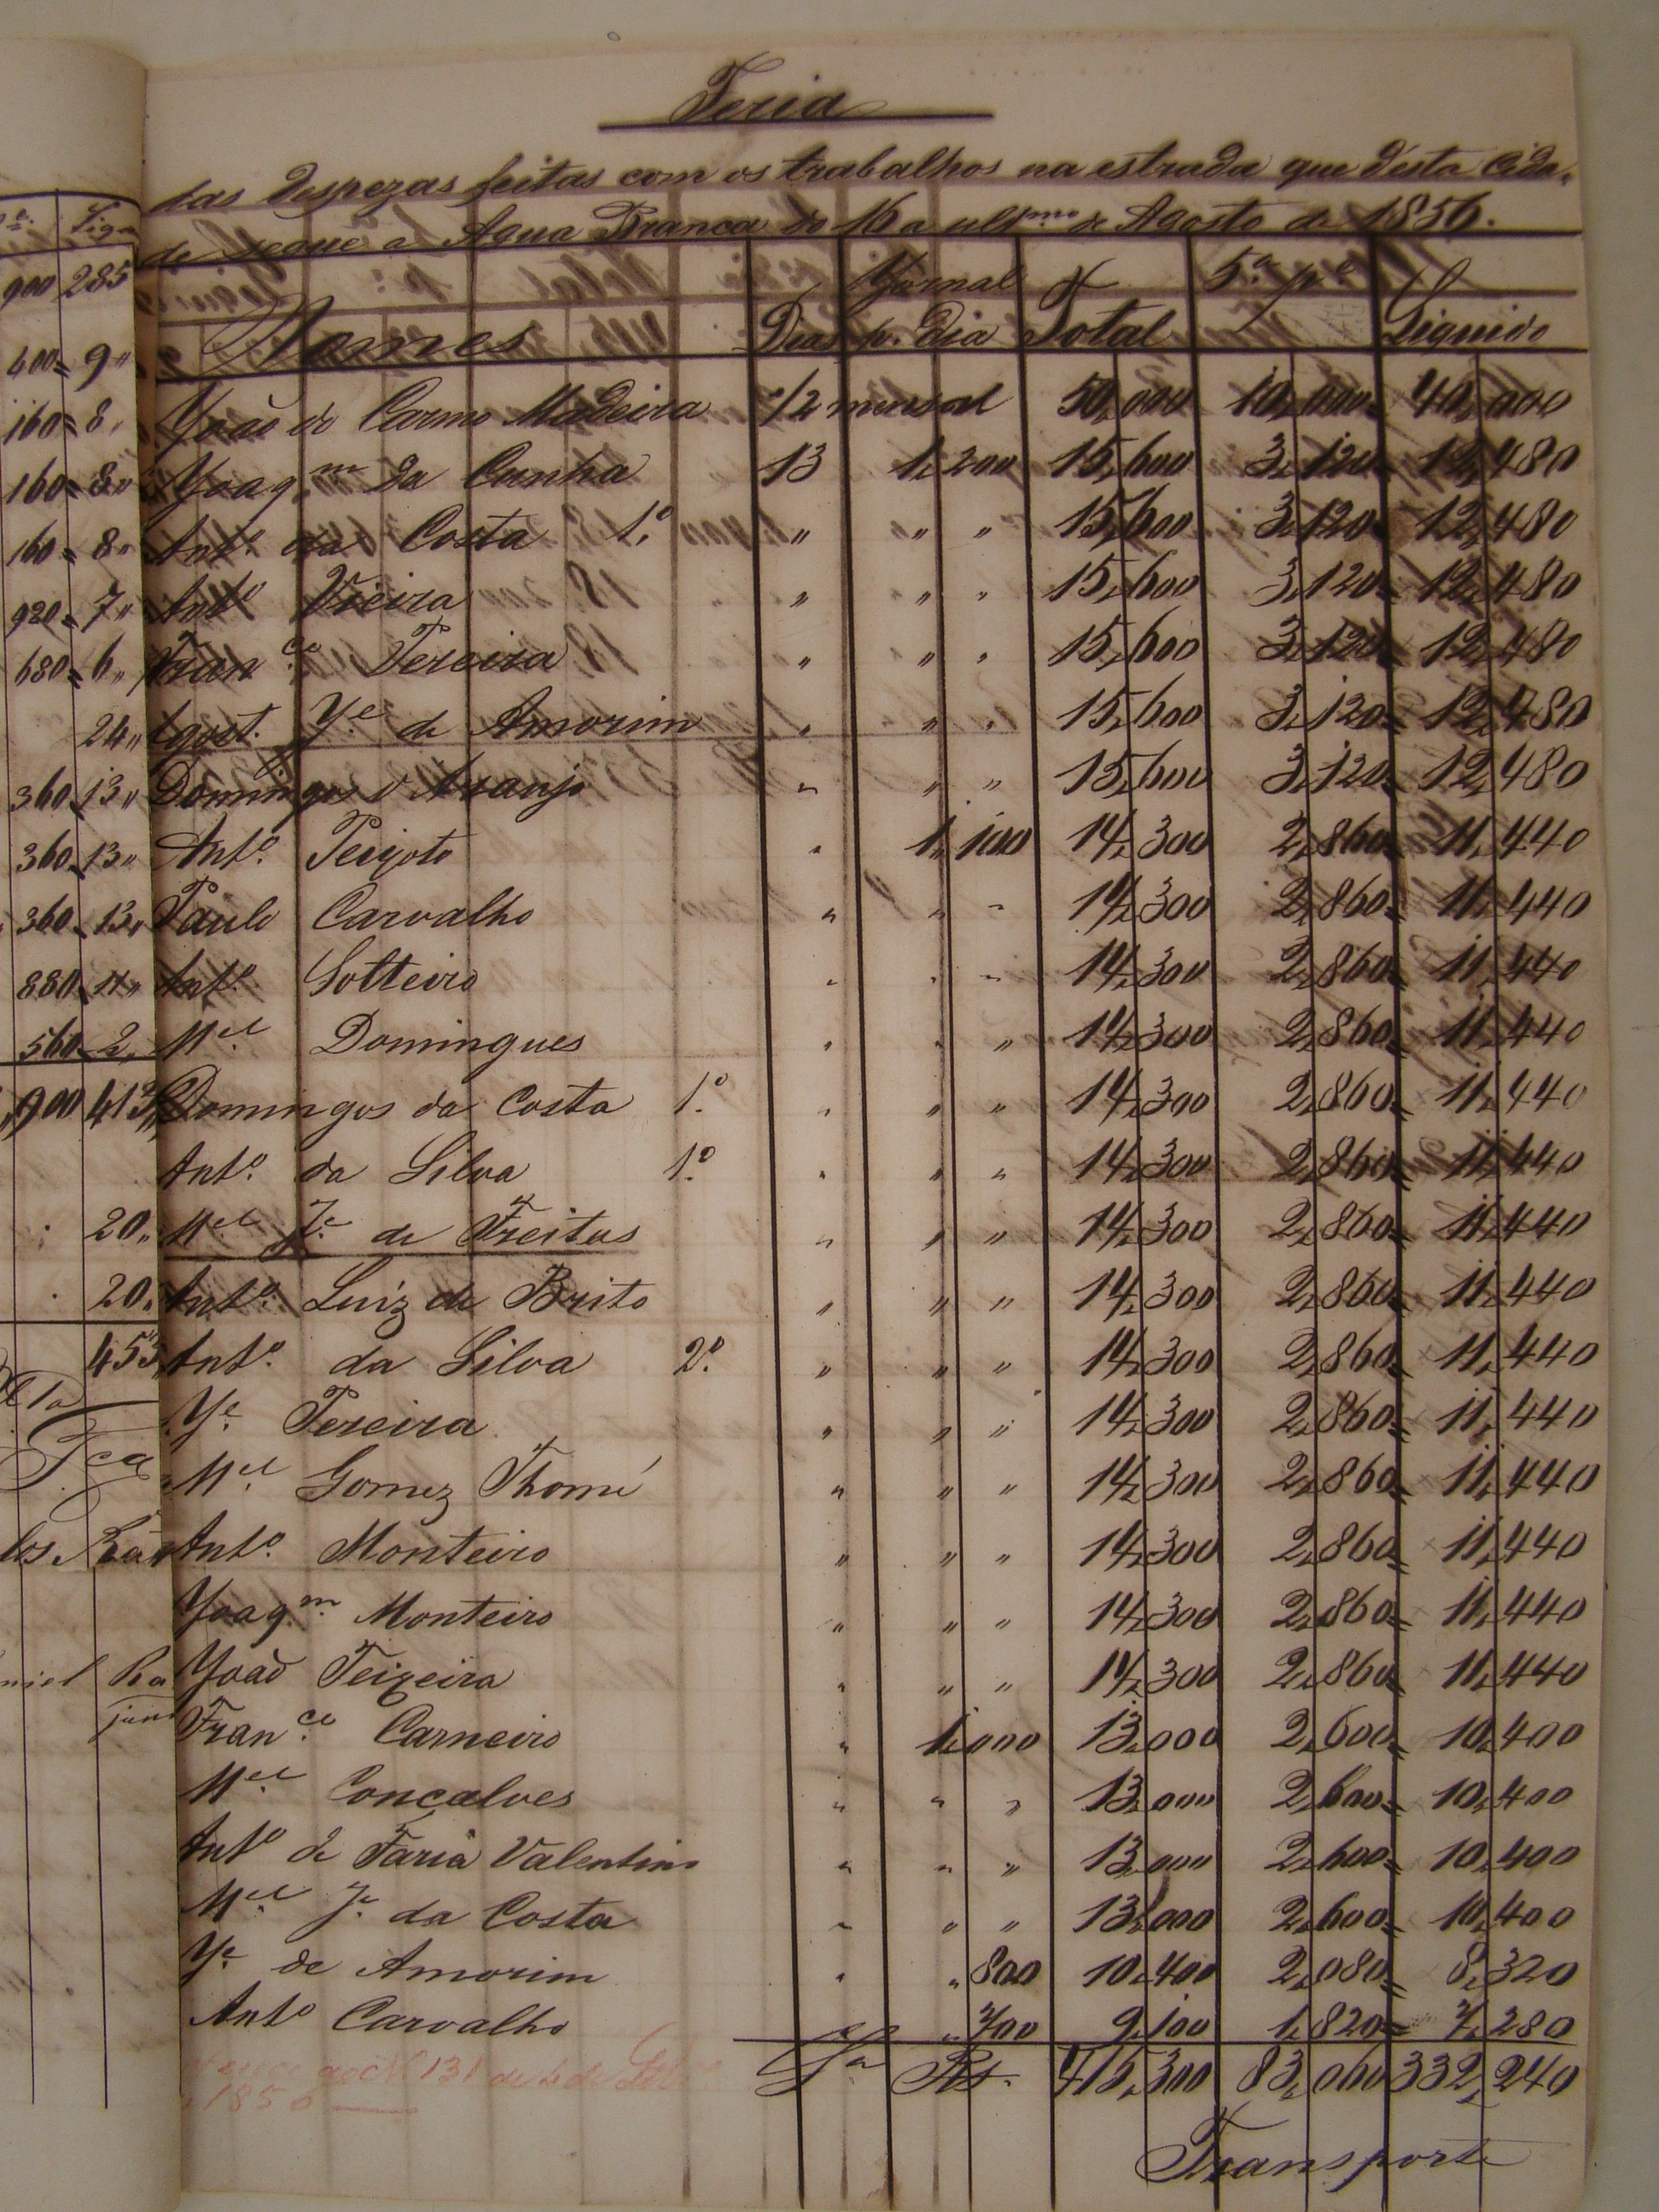 Feria
das despezas feitas com os trabalhos na estrada que desta Cida-
de segue a Agua Branca do 16 a ultmo de Agosto de 1856.
Jornal 5.a p.e
Nomes Dias p. Dia Total Liquido
João do Carmo Madeira 1/2 mensal 50,000 10,000= 40,000
Joaq.m da Cunha 13 1,200 15,600 3,120= 12,480
Ant.o da Costa 1.o " " " 15,600 3,120= 12,480
Ant.o Vieira " " " 15,600 3,120= 12,480
Fran.co Pereira " " " 15,600 3,120= 12,480
Agost. J.e de Amorim " " " 15,600 3,120= 12,480
Domingos d'Araujo " " " 15,600 3,120= 12,480
Ant.o Peixoto " 1,100 14,300 2,860= 11,440
Paulo Carvalho " " " 14,300 2,860= 11,440
Ant.o Solteiro " " " 14,300 2,860= 11,440
M.el Domingues " " " 14,300 2,860= 11,440
Domingos da Costa 1.o " " " 14,300 2,860= 11,440
Ant.o da Silva 1.o " " " 14,300 2,860= 11,440
M.el J.e de Freitas " " " 14,300 2,860= 11,440
Ant.o Luiz de Brito " " " 14,300 2,860= 11,440
Ant.o da Silva 2.o " " " 14,300 2,860= 11,440
J.e Pereira " " " 14,300 2,860= 11,440
M.el Gomez Thomé " " " 14,300 2,860= 11,440
Ant.o Monteiro " " " 14,300 2,860= 11,440
Joaq.m Monteiro " " " 14,300 2,860= 11,440
João Teixeira " " " 14,300 2,860= 11,440
Fran.co Carneiro " 1,000 13,000 2,600= 10,400
M.el Goncalves " " " 13,000 2,600= 10,400
Ant.o de Faria Valentino " " " 13,000 2,600= 10,400
M.el J.e da Costa " " " 13,000 2,600= 10,400
J.e de Amorim " " 800 10,400 2,080= 8,320
Ant.o Carvalho " 700 9,100 1,820= 7,280
S.a Rs. 415,300 83,060 332,240
Transporte